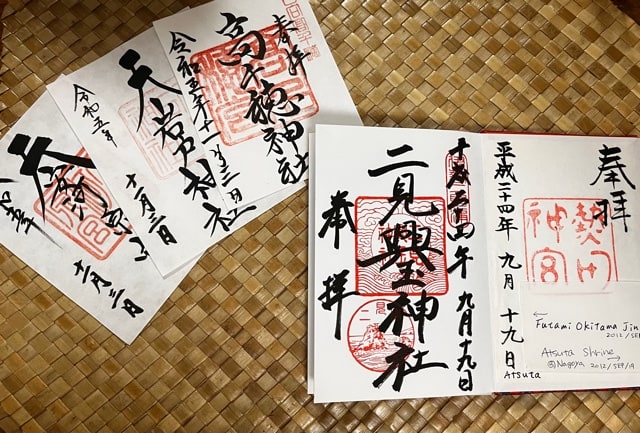 奉拝
高千穂神社
令和五年十一月三日
天岩戸神社
令和五年
十一月三日
天
十一月三日
奉拝
熱田
神宮
平成二十四年 九月 十九日
← Futami Okitama Jin
2012/SE
Atsuta Shrine →
@Nagoya 2012/SEP/19
Atsuta
平成二十四年 九月十九日
二見興玉神社
奉拝